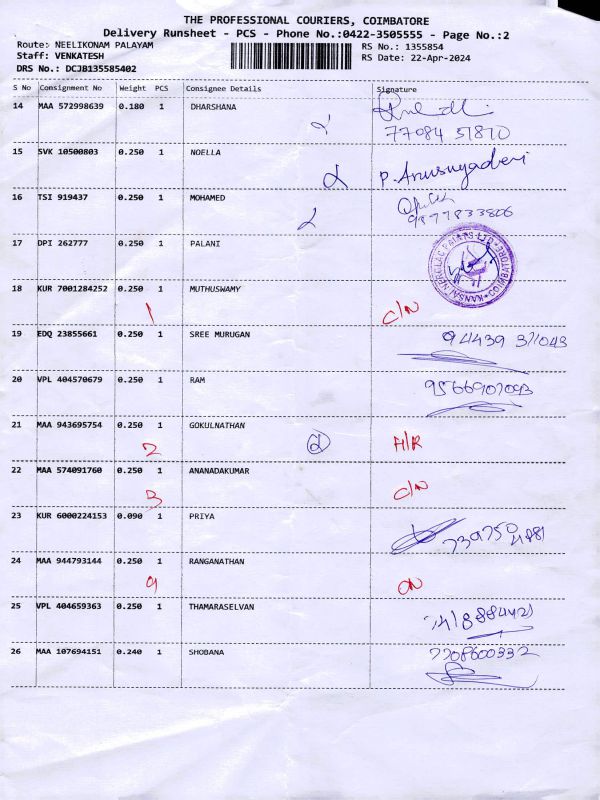 THE PROFESSIONAL COURIERS, COIMBATORE
Delivery Runsheet - PCS - Phone No.:0422-3505555 - Page No.:2
Route: NEELIKONAM PALAYAM RS No.: 1355854
Staff: VENKATESH RS Date: 22-Apr-2024
DRS No.: DCJB135585402
S No Consignment No Weight PCS Consignee Details Signature
14 MAA 572998639 0.180 1 DHARSHANA
77084 51870
15 SVK 10500803 0.250 1 NOELLA P. Anusuyadevi
16 TSI 919437 0.250 1 MOHAMED
9877833806
17 DPI 262777 0.250 1 PALANI
KANSAI NEROLAC PAINTS LTD. COIMBATORE
18 KUR 7001284252 0.250 1 MUTHUSWAMY
1 C/N
19 EDQ 23855661 0.250 1 SREE MURUGAN 94439 371043
20 VPL 404570679 0.250 1 RAM 9566907093
21 MAA 943695754 0.250 1 GOKULNATHAN
2 H/R
22 MAA 574091760 0.250 1 ANANADAKUMAR
3 C/N
23 KUR 6000224153 0.090 1 PRIYA
739750 4881
24 MAA 944793144 0.250 1 RANGANATHAN
9
25 VPL 404659363 0.250 1 THAMARASELVAN
26 MAA 107694151 0.240 1 SHOBANA 7708600332